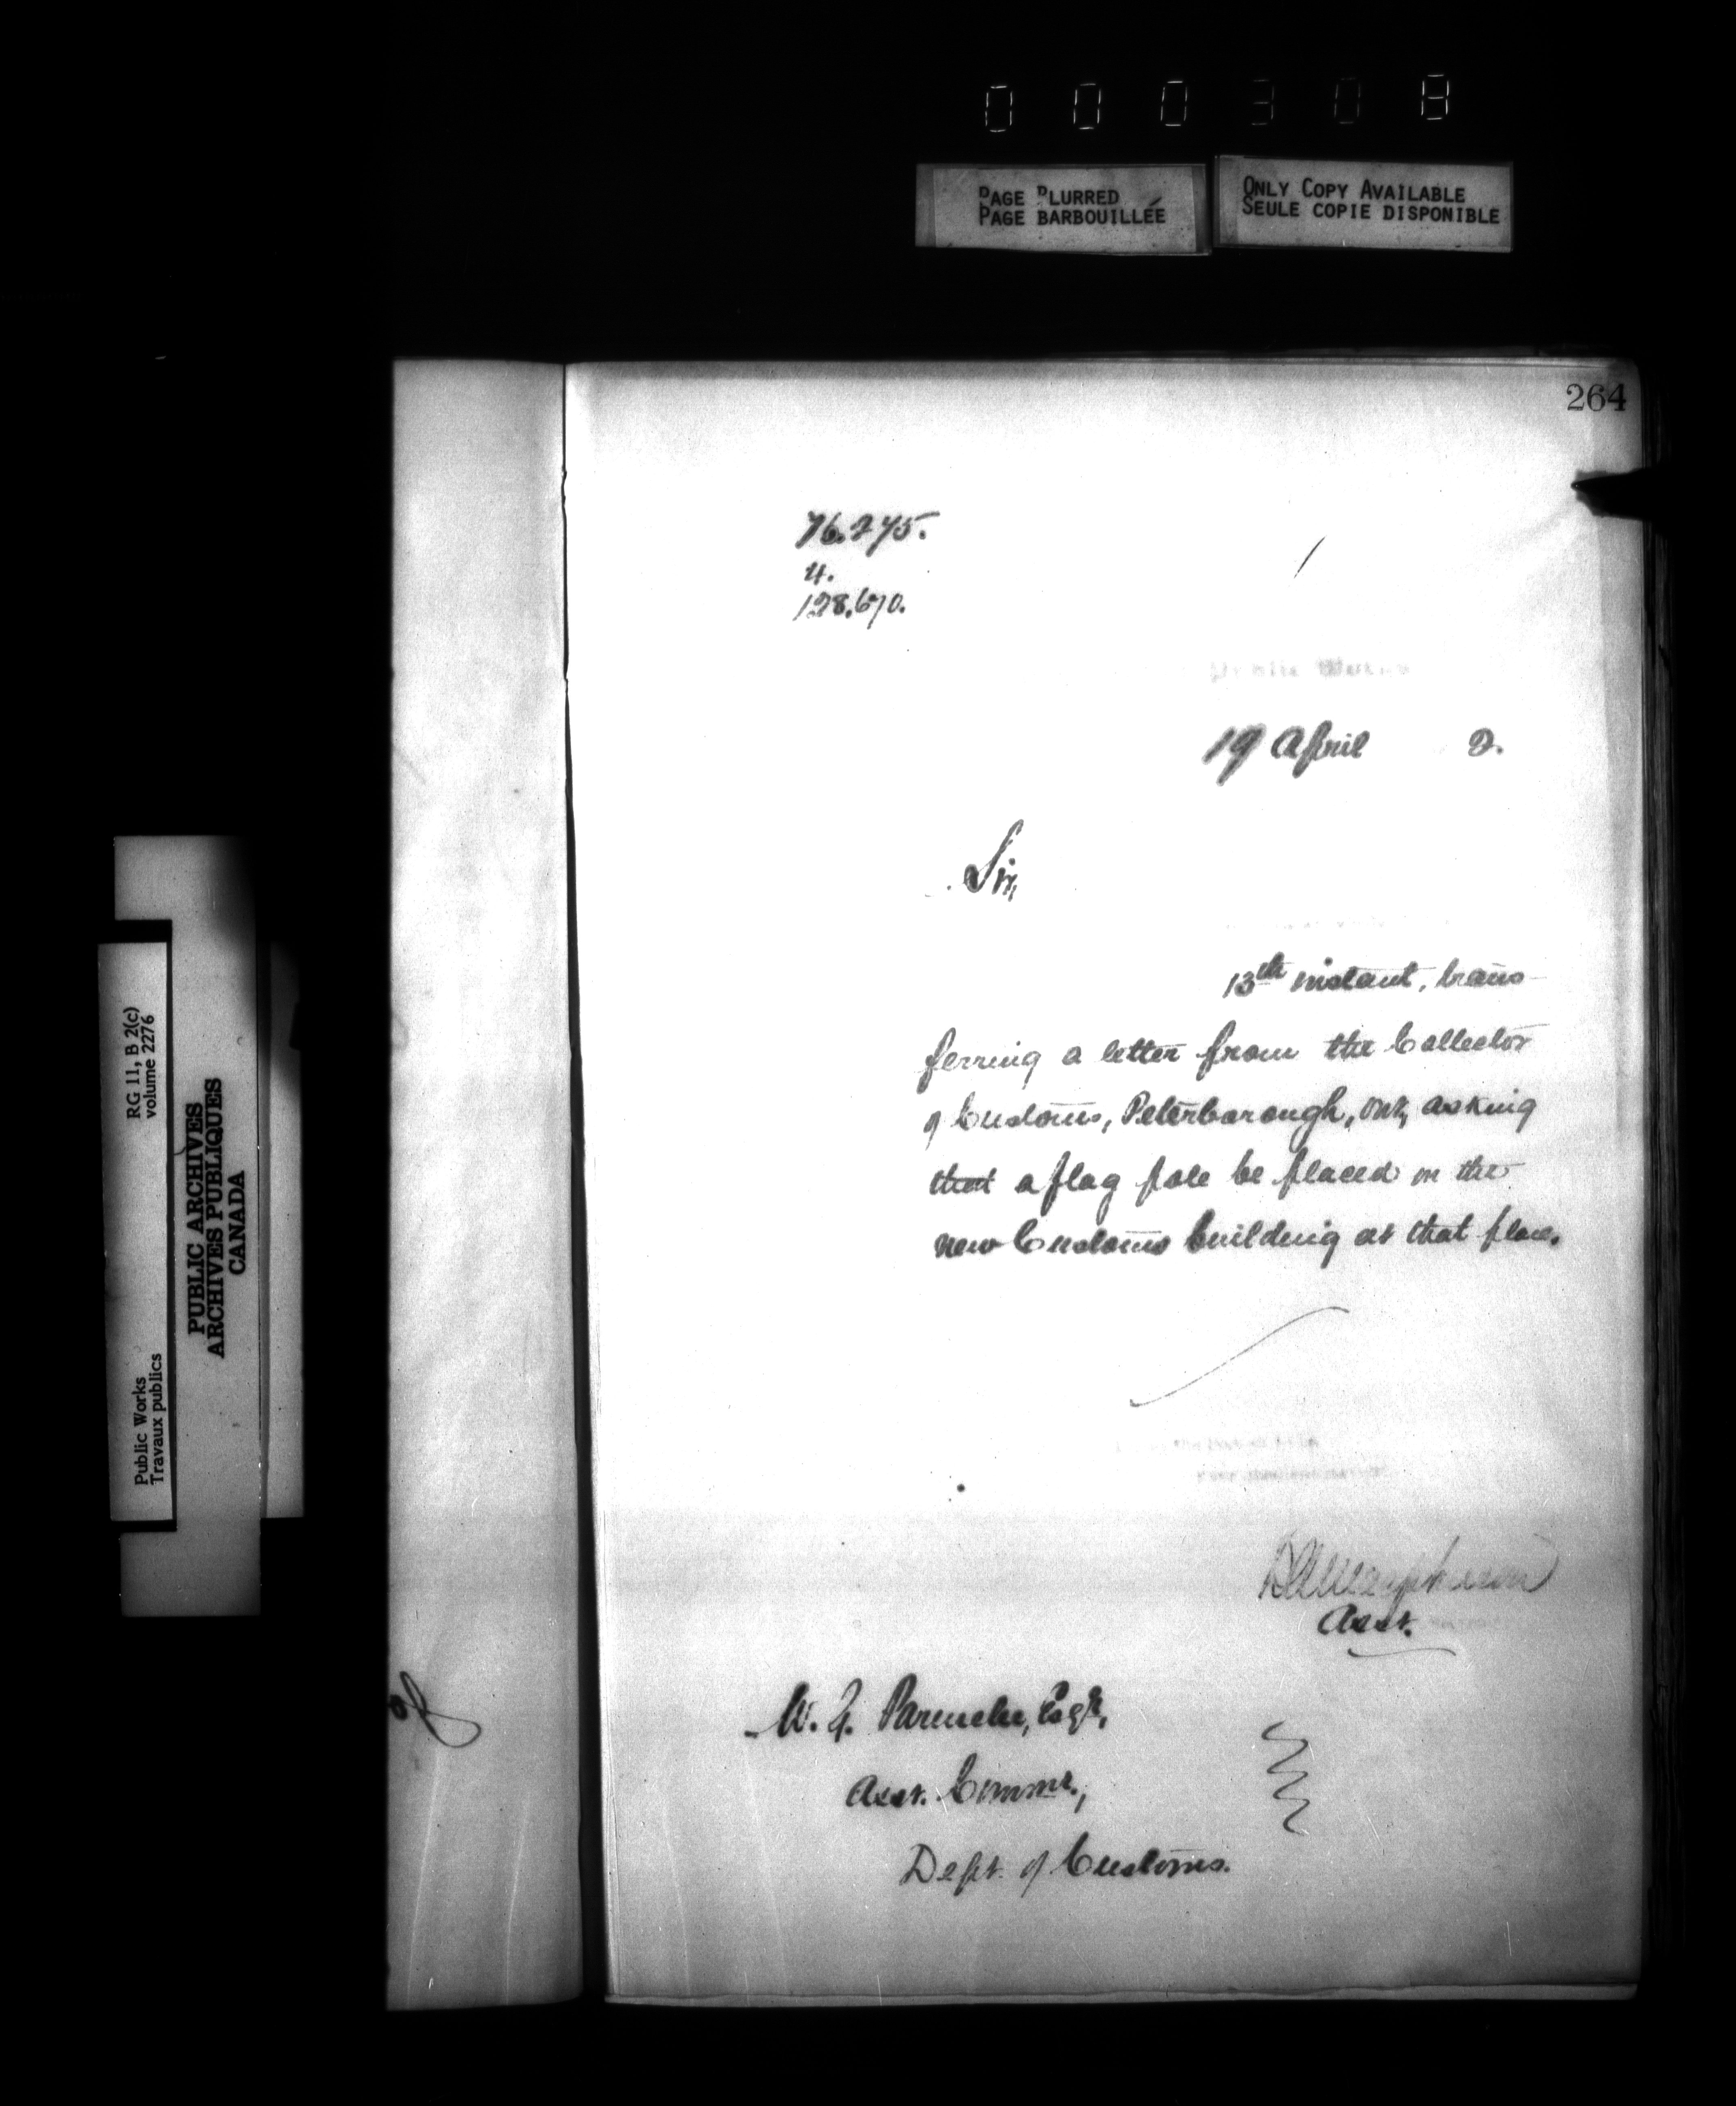 000308
PAGE BLURRED
PAGE BARBOUILLÉE
ONLY COPY AVAILABLE
SEULE COPIE DISPONIBLE
264
76.275.
4.
128,670.
19 April 2.
Sir,
13th instant, trans-
ferring a letter from the Collector
of Customs, Peterborough, Ont, asking
that a flag pole be placed on the
new Customs building at that place.
Asst.
W. G. Parmelee, Esqr,
Asst. Commr.,
Dept. of Customs.
RG 11, B 2(c)
volume 2276
Public Works
Travaux publics
PUBLIC ARCHIVES
ARCHIVES PUBLIQUES
CANADA